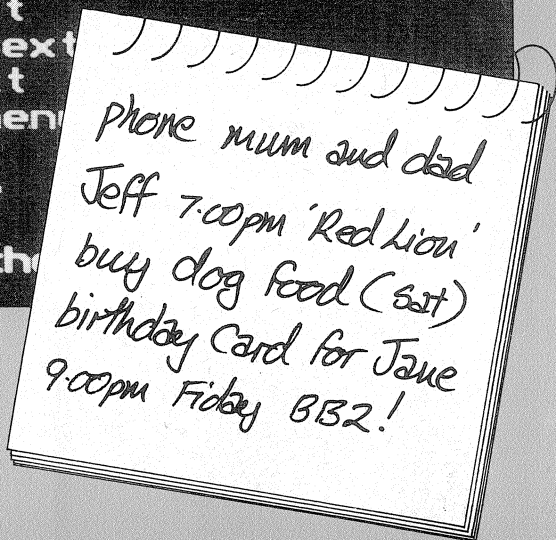 t
ext
t
enu
the
phone mum and dad
Jeff 7.00pm 'Red Lion'
buy dog food (Sat)
birthday Card for Jane
9.00pm Fiday BB2!